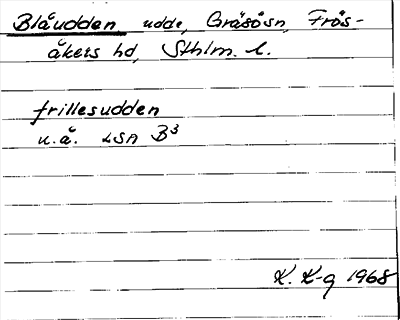 Blåudden udde, Gräsösn, Frös-
åkers hd, Sthlm. l.
frillesudden
u.å. LSA B3
K. K-g 1968